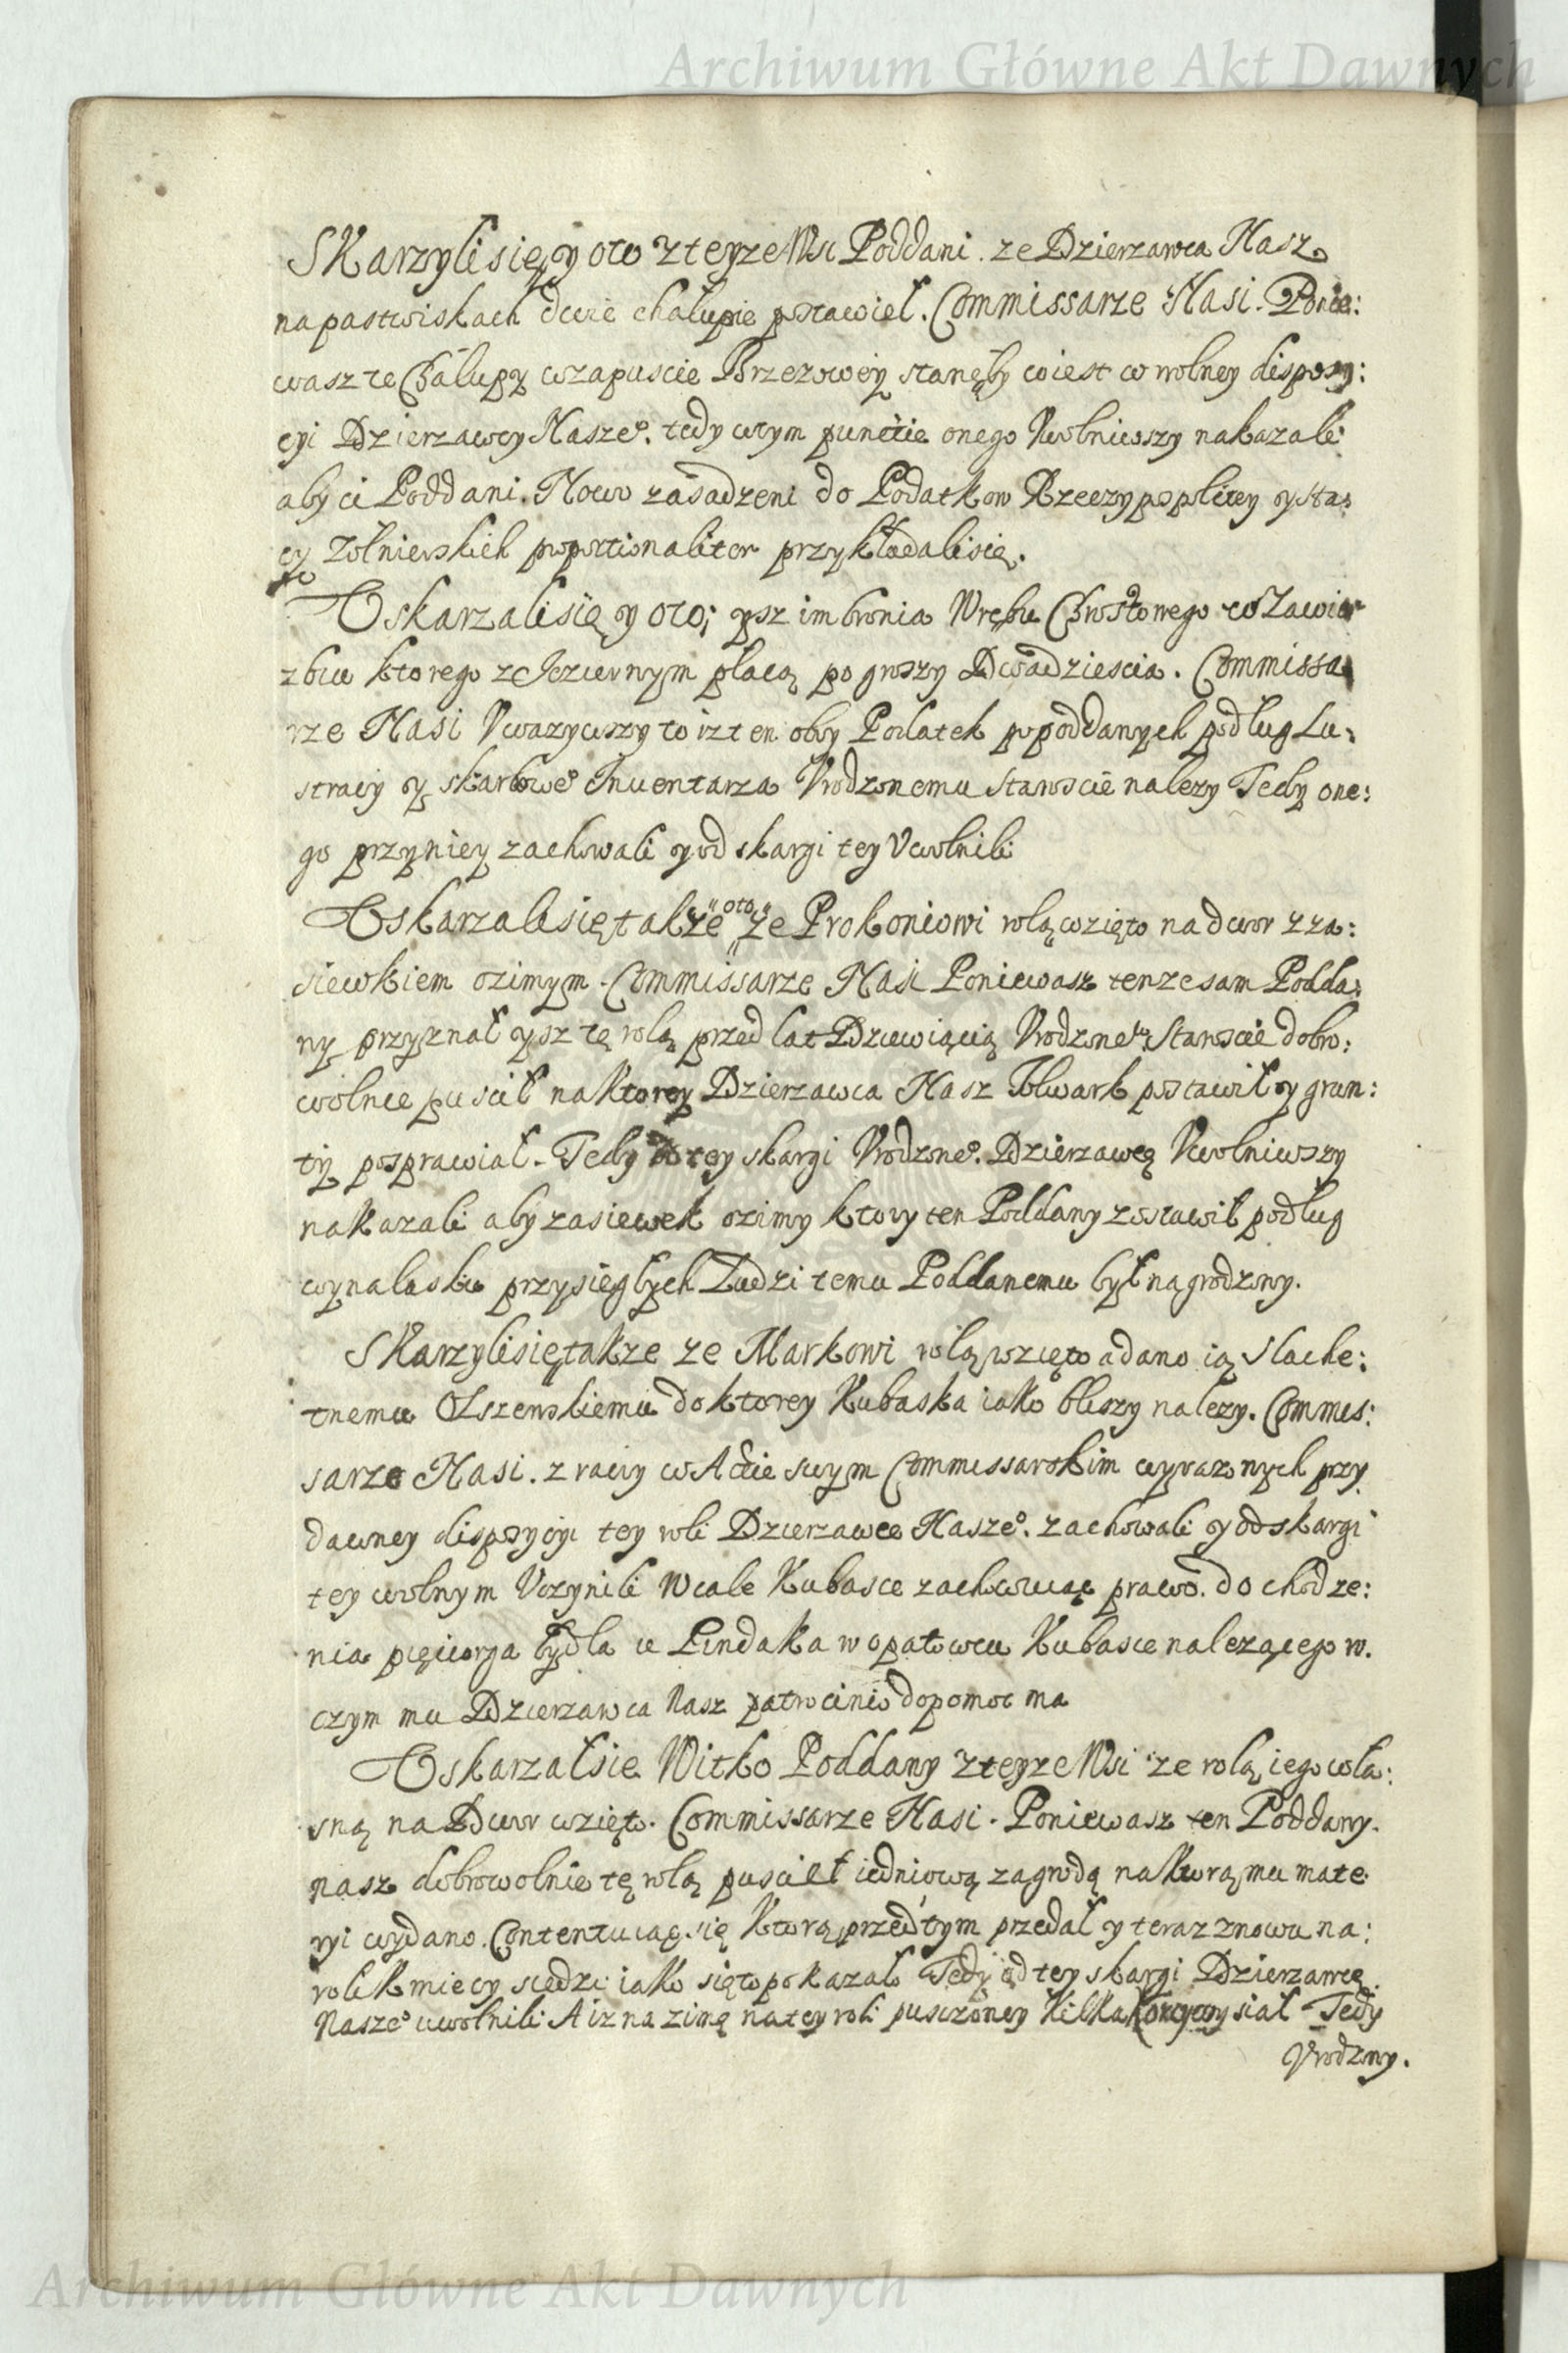 Archiwum Główne Akt Dawnych
Skarzyli się y oto z teyze Wsi Poddani. ze Dzierzawca Nasz
na pastwiskach dwie chałupie postawieł. Commissarze Nasi. Ponie:
wasz te Chałupy w zapuscie Brzezowey stanęły co iest w wolney disposy:
cyi Dzierzawcy Nasze°. tedy w tym punctie onego Vwolniwszy nakazali
aby ci Poddani. Nowo zasadzeni do Podatkow Rzeczypospolitey y sta:
cy Zołnierskich proportionaliter przykładali się.
Uskarzali się y oto; ysz im bronia Wrębu Chrostowego w Zawier
zbiu ktorego z Jeziernym płacą po groszy Dwadziescia. Commissa
rze Nasi Vwazywszy to iz ten oboy Podatek po poddanych podług Lu:
stracy y skarbowe° Inuentarza Vrodzonemu Staroscie nalezy Tedy one:
go przy niey zachowali y od skargi tey Vwolnili
Uskarzali się także oto że Prokoniowi rolą wzięto na dwor z za:
siewkiem ozimym. Commissarze Nasi Poniewasz tenze sam Podda:
ny przyznał ysz tę rolą przed lat Dziewiącią Vrodzone Staroscie dobro:
wolnie puscił na ktorey Dzierzawca Nasz Folwark postawił y grun:
ty posprawiał. Tedy tey skargi Vrodzone°. Dzierzawcę Vwolniwszy
nakazali aby zasiewek ozimy ktory ten Poddany zostawił podług
wynalasku przysięgłych Ludzi temu Poddanemu był nagrodzony.
Skarzyli się takze ze Markowi rolą wzięto a dano ią slache:
tnemu Olszewskiemu do ktorey Kubaska iako bliszy nalezy. Commis:
sarze Nasi. z raciy w Actie swym Commissarskim wyrazonych przy
dawney disposycyi tey roli Dzierzawce Nasze°. zachowali y od skargi
tey wolnym Vczynili Wcale Kubasce zachowuiąc prawo. do chodze:
nia pięciorga bydła u Lindaka w opatowcu Kubasce nalezącego w.
czym mu Dzierzawca Nasz patrocinio dopomoc ma
Uskarzał sie Witko Poddany z teyze Wsi ze rolą iego wła:
sną na Dwor wzięto. Commissarze Nasi. Poniewasz ten Poddany.
nasz dobrowolnie tę rolą puscieł iedniową zagrodą na ktorą mu mate
ryi wydano. Contentuiąc się Ktorą przed tym przedał y teraz znowu na:
roli kmiecy siedzi iako się to pokazało Tedy od tey skargi Dzierzawcę.
Nasze° uwolnili. A iz na zimę na tey roli pusczoney Kilka siał Tedy
Vrodzony.
Archiwum Główne Akt Dawnych